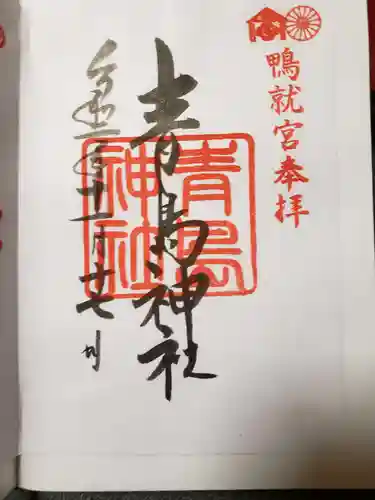 鴨就宮奉拝
青島神社
青島
神社
令和 年十一月 日